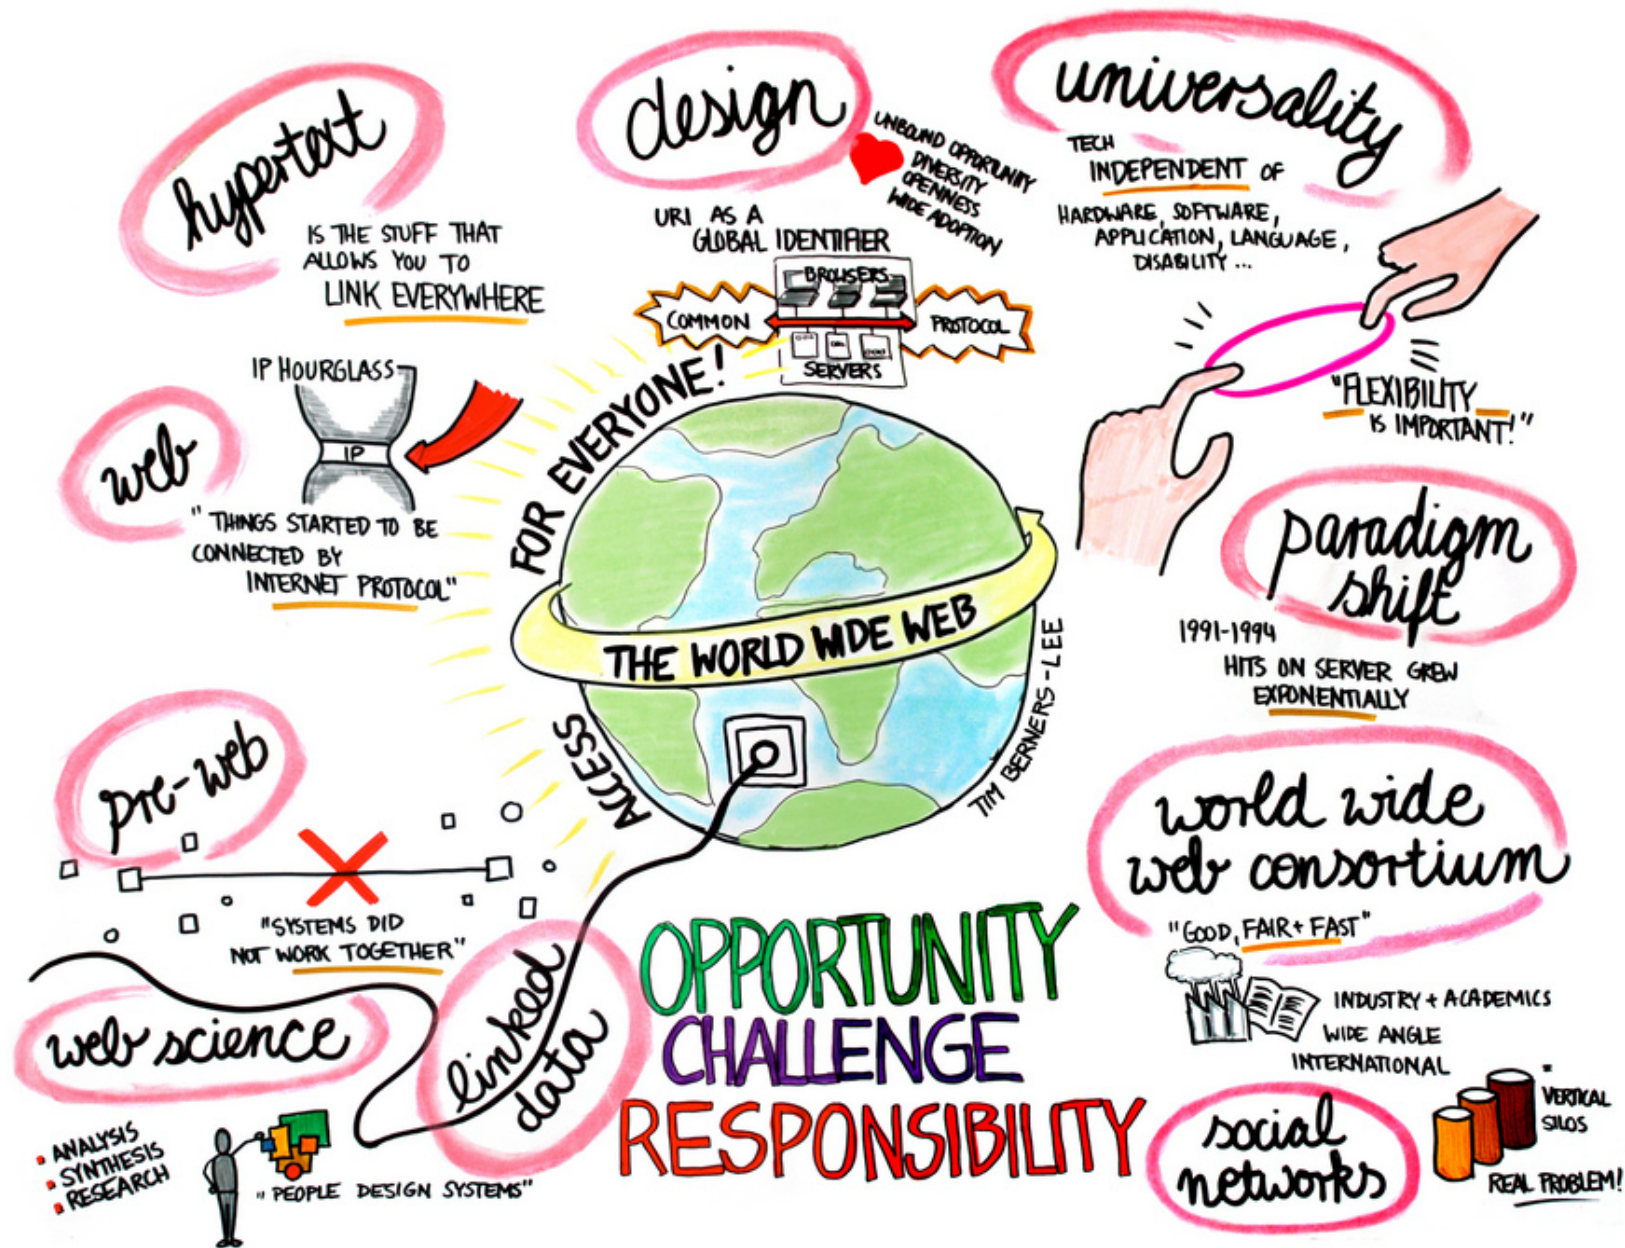 hypertext
IS THE STUFF THAT
ALLOWS YOU TO
LINK EVERYWHERE
design
UNBOUND OPPORTUNITY
DIVERSITY
OPENNESS
WIDE ADOPTION
URI AS A
GLOBAL IDENTIFIER
BROWSERS
COMMON
PROTOCOL
SERVERS
universality
TECH
INDEPENDENT OF
HARDWARE, SOFTWARE,
APPLICATION, LANGUAGE,
DISABILITY ...
"FLEXIBILITY
IS IMPORTANT!"
web
IP HOURGLASS
IP
"THINGS STARTED TO BE
CONNECTED BY
INTERNET PROTOCOL"
ACCESS
FOR EVERYONE!
THE WORLD WIDE WEB
TIM BERNERS-LEE
paradigm
shift
1991-1994
HITS ON SERVER GREW
EXPONENTIALLY
pre-web
"SYSTEMS DID
NOT WORK TOGETHER"
world wide
web consortium
"GOOD, FAIR + FAST"
INDUSTRY + ACADEMICS
WIDE ANGLE
INTERNATIONAL
web science
ANALYSIS
SYNTHESIS
RESEARCH
"PEOPLE DESIGN SYSTEMS"
linked
data
OPPORTUNITY
CHALLENGE
RESPONSIBILITY
social
networks
VERTICAL
SILOS
REAL PROBLEM!